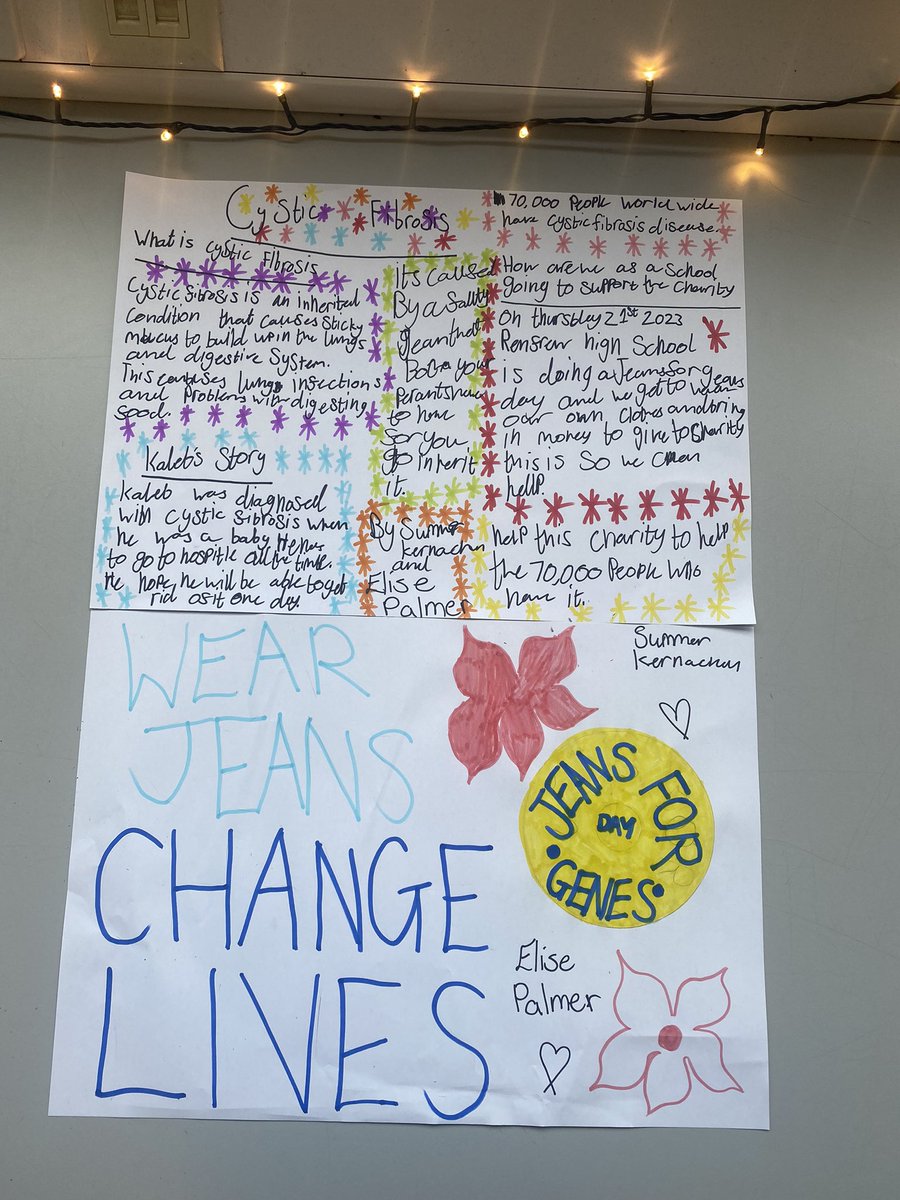 Cystic Fibrosis
What is cystic Fibrosis
Cystic fibrosis is an inherited
condition that causes sticky
mucus to build up in the lungs
and digestive system.
This causes lung infections
and problems with digesting
food.
Kaleb's Story
Kaleb was diagnosed
with cystic fibrosis when
he was a baby He has
to go to hospitle all the time.
He hope he will be able to get
rid of it one day.
It's caused
By a faulty
gean that
Both your
perants have
to have
for you
to inherit
it.
By Summer
kernachan
and
Elise
Palmer
70,000 People world wide
have cystic fibrosis disease
How are we as a School
going to support the charity
On thursday 21st 2023
Renfrew high School
is doing a Jeans for geans
day and we get to wear
our own clothes and bring
in money to give to charity
this is so we can
help.
help this charity to help
the 70,0,00 People who
have it.
WEAR
JEANS
CHANGE
LIVES
Summer
kernachan
JEANS FOR
DAY
GENES
Elise
Palmer